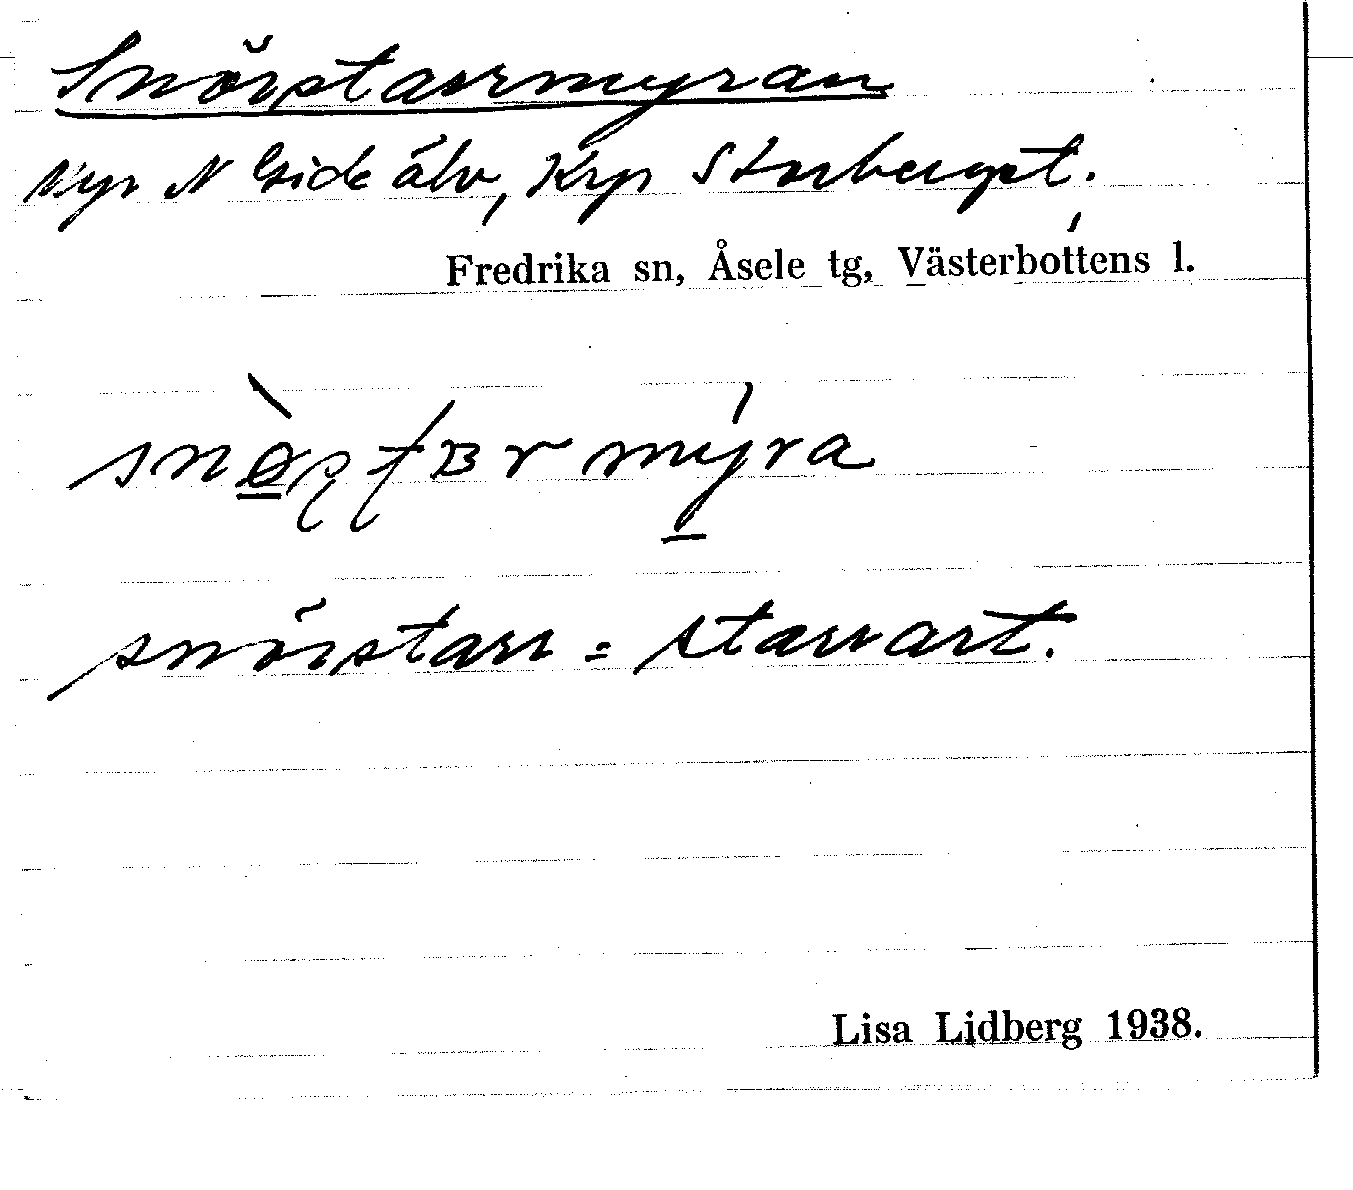 Snörstarrmyran
Myr N Gide älv, Krp Storberget.
Fredrika sn, Åsele tg, Västerbottens l.
myra
snörstarr = starrart.
Lisa Lidberg 1938.